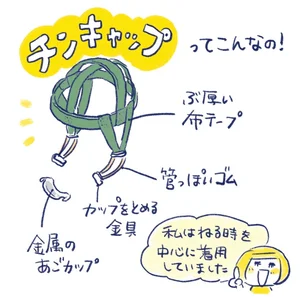 チンキャップ
ってこんなの!
ぶ厚い
布テープ
管っぽいゴム
カップをとめる
金具
金属の
あごカップ
私はねる時を
中心に着用
していました